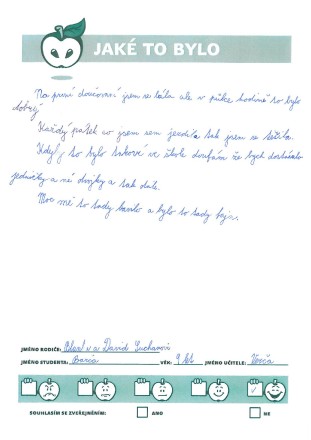 JAKÉ TO BYLO
Na první doučování jsem se bála ale v půlce hodině to bylo
dobrý.
Každý pátek co jsem sem jezdila tak jsem se těšila.
Kdyby to bylo takové ve škole doufám že bych dostávala
jedničky a né dvojky a tak dále.
Moc mě to tady bavilo a bylo to tady fajn.
JMÉNO RODIČE: a David
JMÉNO STUDENTA: Barča VĚK: 9 let JMÉNO UČITELE: Verča
SOUHLASÍM SE ZVEŘEJNĚNÍM: ANO NE